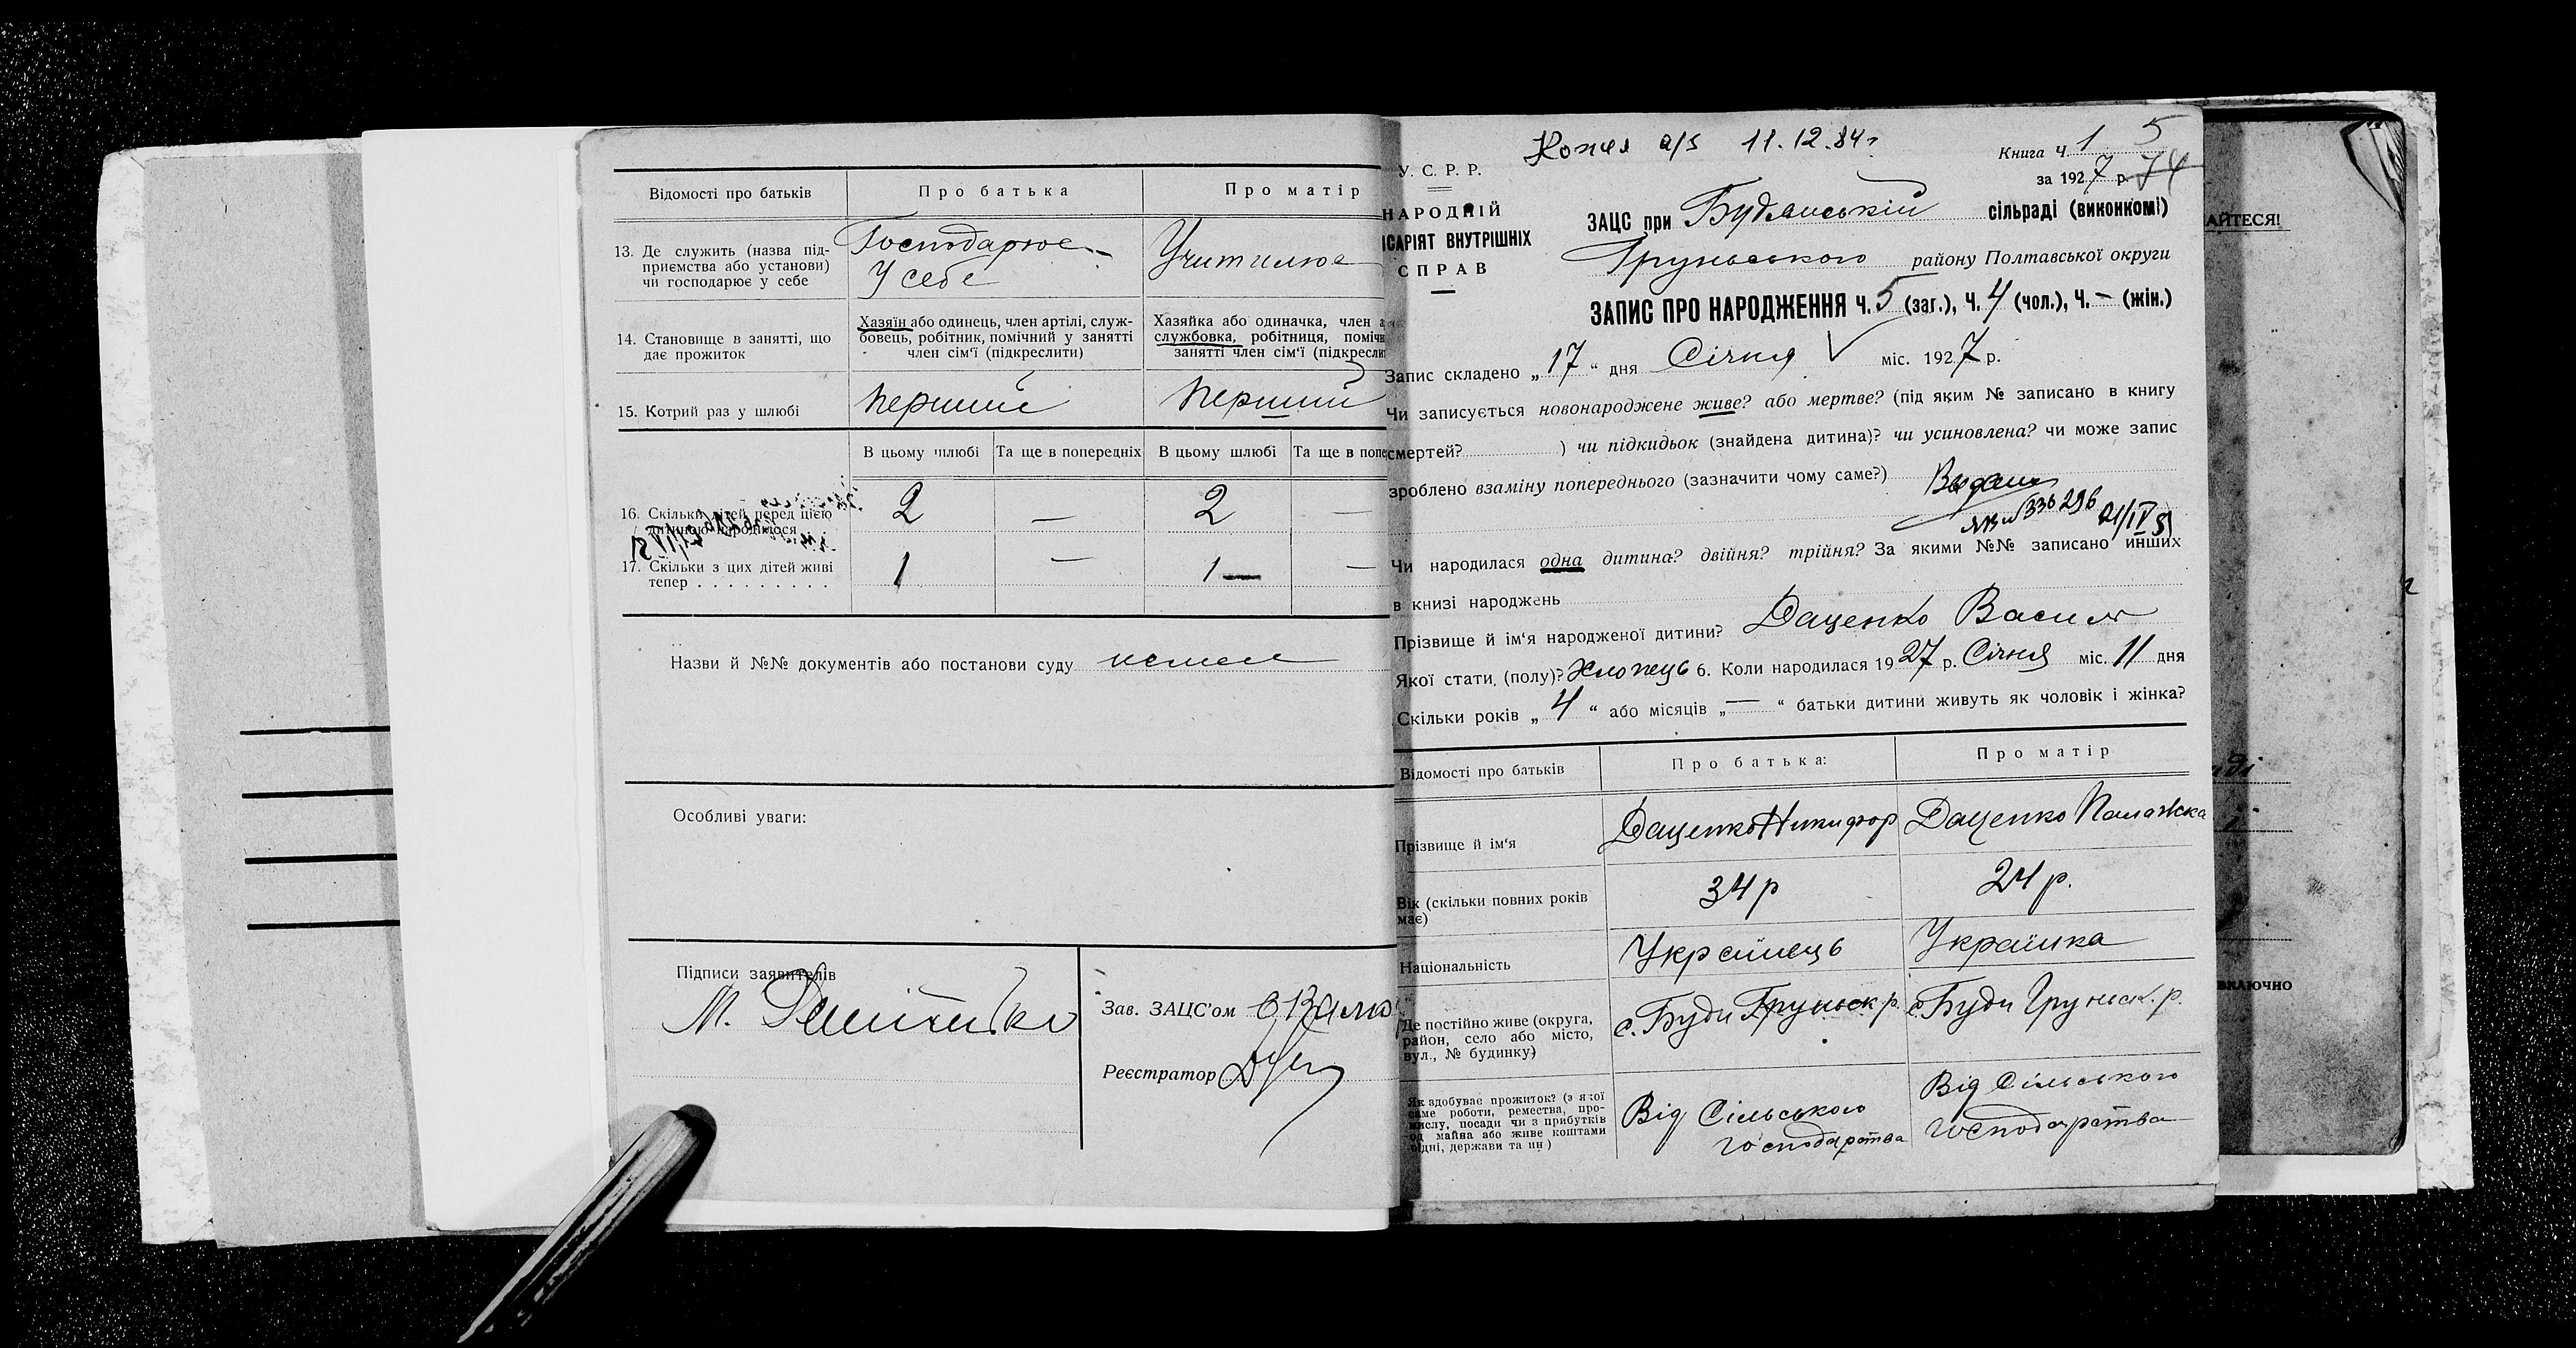 Відомості про батьків
Про батька
Про матір
13. Де служить (назва під-
приємства або установи)
чи господарює у себе
Господарює
У себе
Учителює
14. Становище в занятті, що
дає прожиток
Хазяїн або одинець, член артілі, служ-
бовець, робітник, помічний у занятті
член сім'ї (підкреслити)
Хазяйка або одиначка, член
службовка, робітниця,
занятті член сім'ї
15. Котрий раз у шлюбі
перший
перший
В цьому шлюбі
Та ще в попередніх
В цьому шлюбі
Та ще в
16. Скільки дітей перед цією
дитиною народилося
2
—
2
—
17. Скільки з цих дітей живі
тепер . . . . . . . . .
1
—
1 —
—
Назви й №№ документів або постанови суду немає
Особливі уваги:
Підписи заявителів
М.
Зав. ЗАЦС'ом
Реєстратор
Копия а/з 11.12.84г
Книга ч. 1 5
за 1927 р. 74
У. С. Р. Р.
НАРОДНІЙ
ІСАРІЯТ ВНУТРІШНІХ
СПРАВ
ЗАЦС при Будянській сільраді (виконкомі)
Груньського району Полтавської округи
ЗАПИС ПРО НАРОДЖЕННЯ Ч. 5 (заг.), Ч. 4 (чол.), Ч. – (жін.)
Запис складено „17“ дня Січня міс. 1927 р.
Чи записується новонароджене живе? або мертве? (під яким № записано в книгу
смертей? ) чи підкидьок (знайдена дитина)? чи усиновлена? чи може запис
зроблено взаміну попереднього (зазначити чому саме?)
336296 21/IV 51
Чи народилася одна дитина? двійня? трійня? За якими №№ записано инших
в книзі народжень
Прізвище й ім'я народженої дитини? Даценко Василь
Якої стати, (полу)? Хлопець 6. Коли народилася 1927 р. Січня міс. 11 дня
Скільки років „4“ або місяців „—“ батьки дитини живуть як чоловік і жінка?
Відомості про батьків
Про батька:
Про матір
Прізвище й ім'я
Даценко Никифор
Даценко Палажка
Вік (скільки повних років
має)
34 р
24 р.
Національність
Українець
Українка
Де постійно живе (округа,
район, село або місто,
вул., № будинку)
с. Буди Груньск р.
с. Буди Груньск. р.
Як здобуває прожиток? (з якої
саме роботи, ремества, про-
мислу, посади чи з прибутків
од майна або живе коштами
рідні, держави та ин)
Від Сільського
господарства
Від Сільського
господарства
АЙТЕСЯ!
ВКЛЮЧНО